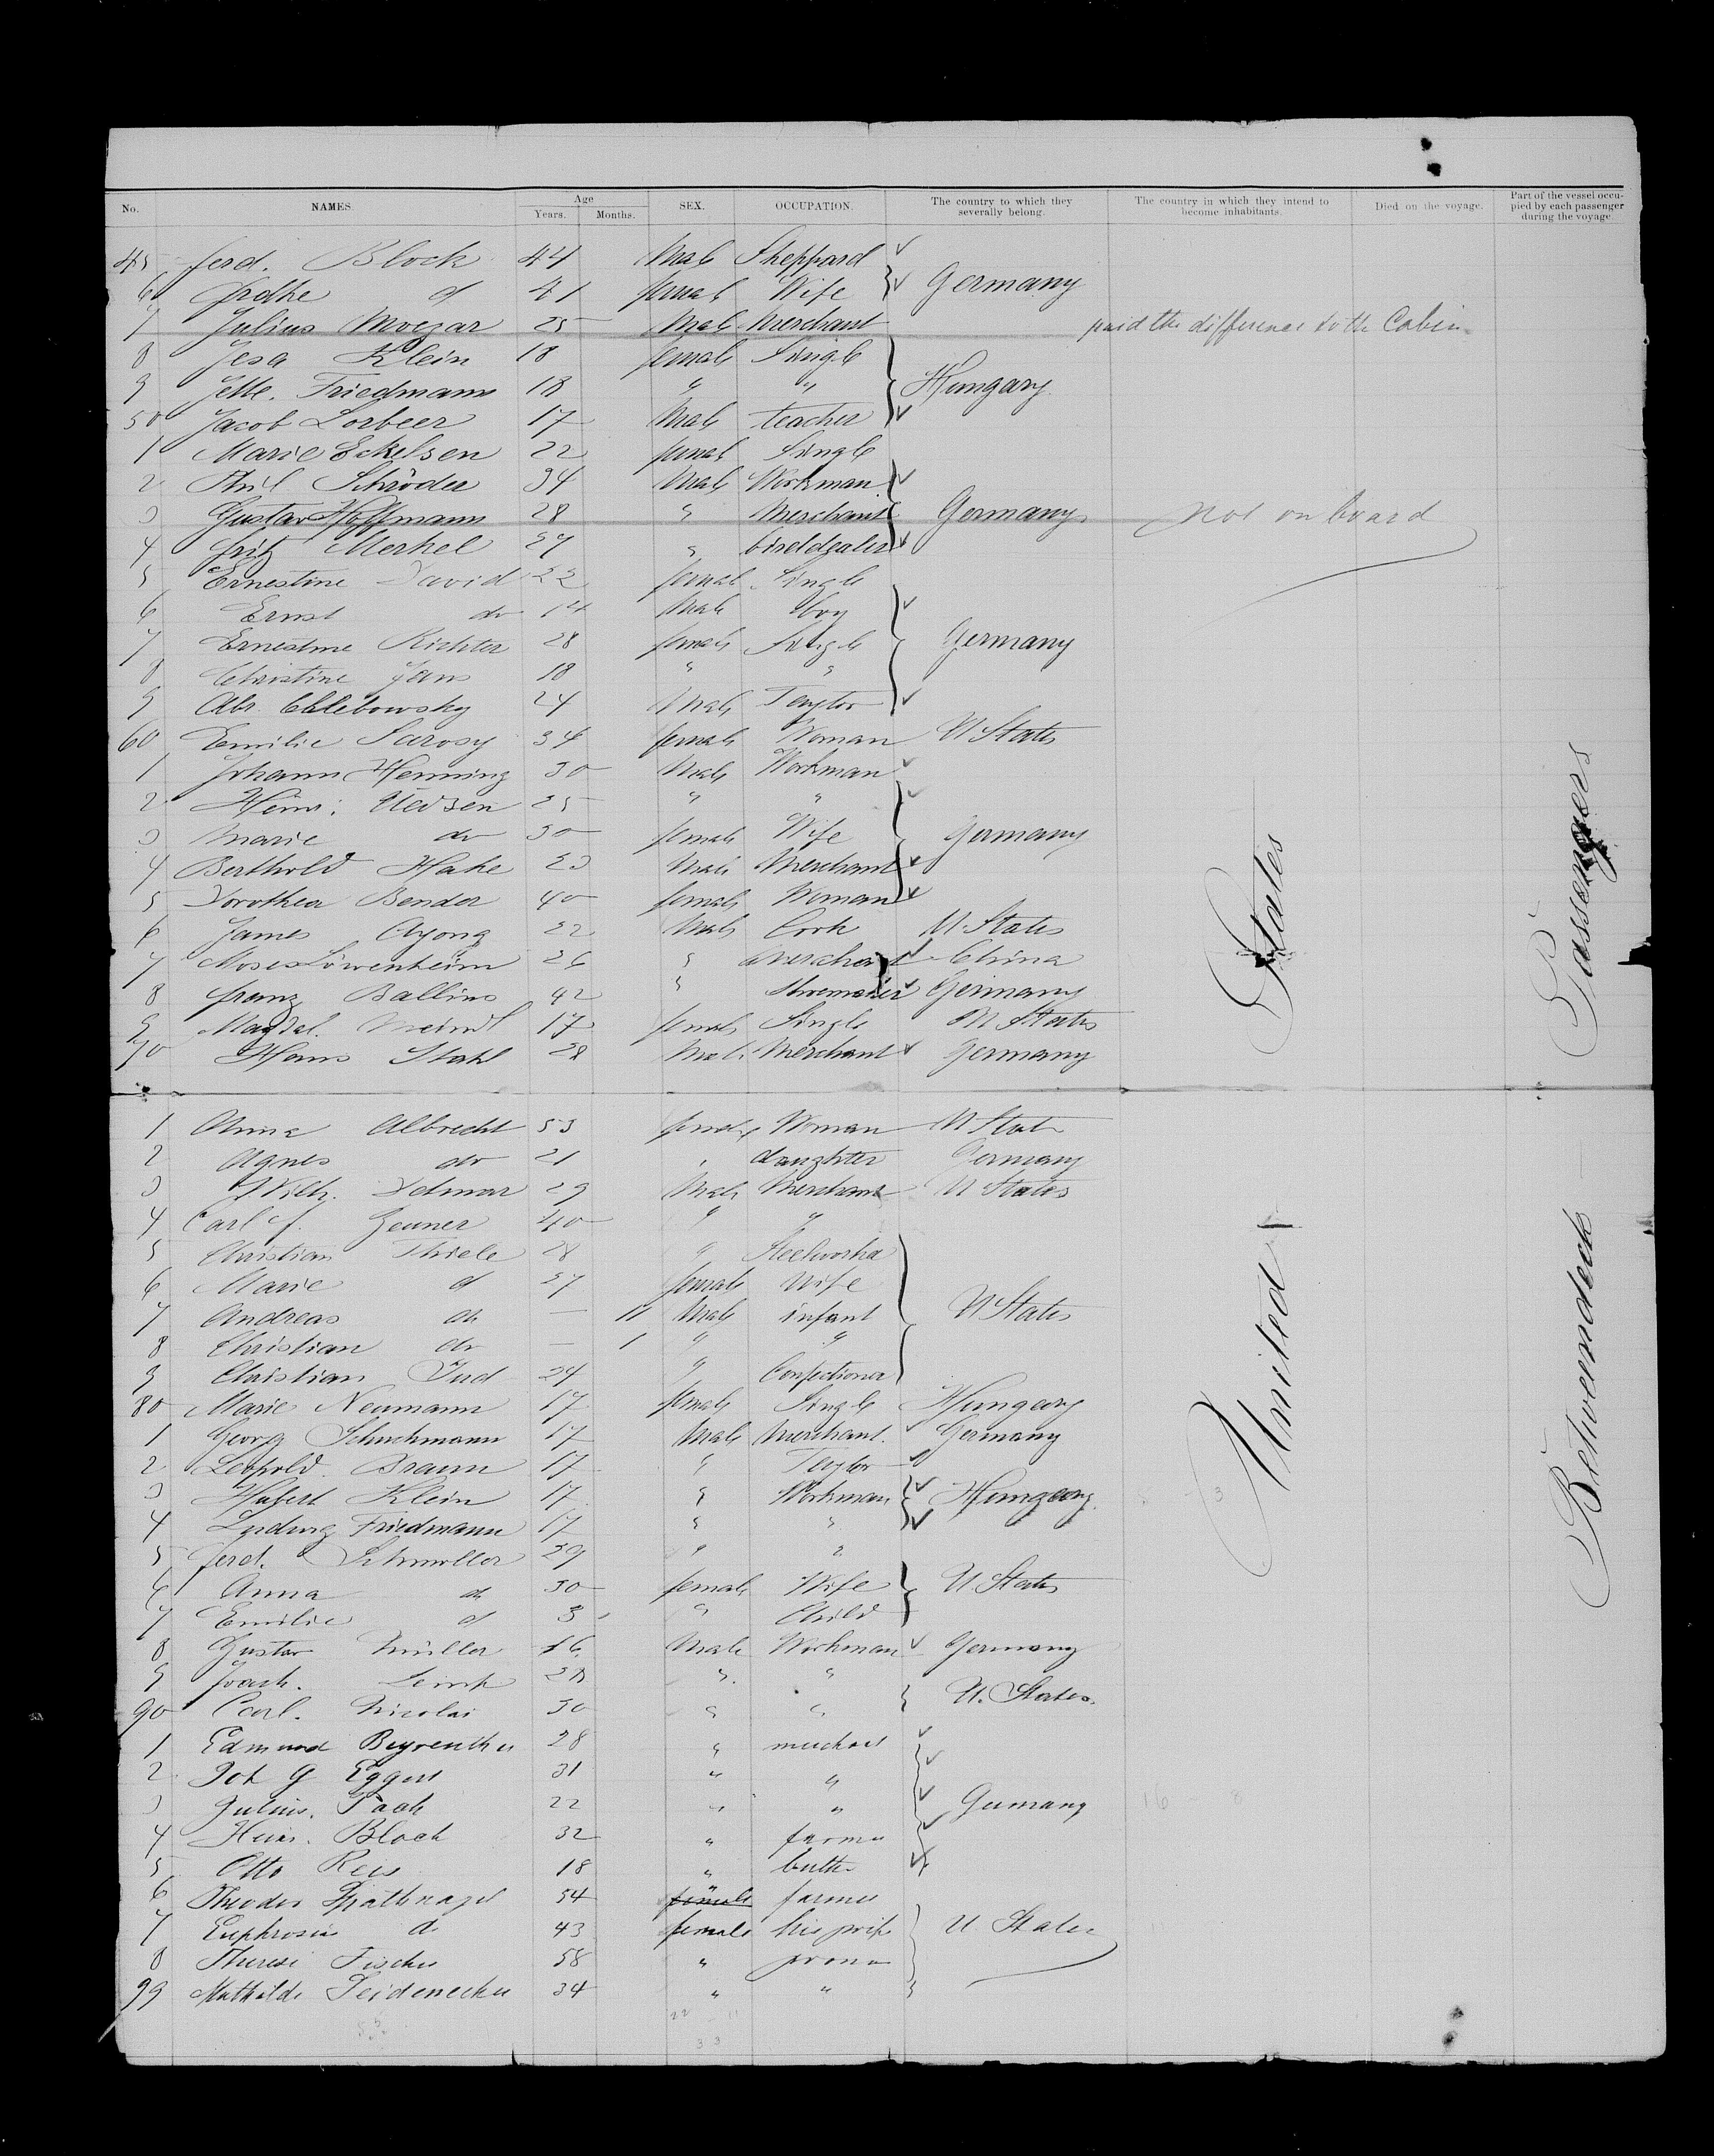 No. NAMES. Age Years. Months. SEX. OCCUPATION. The country to which they severally belong. The country in which they intend to become inhabitants. Died on the voyage. Part of the vessel occupied by each passenger during the voyage.
45 Ferd. Block 44 Male Sheppard
6 do 41 female Wife Germany
7 Julius 25 Male Merchant paid the difference to the Cabin
8 Klein 18 female Single
9 Jette. Friedmann 18 " " Hungary
50 Jacob Lorbeer 17 Male teacher
1 Marie Eckelsen 22 female Single
2 Schröder 34 Male Workman
3 Gustav Hoffmann 28 " Merchant Germany Not on board
4 Fritz Merkel 27 " birddealer
5 Ernestine David 22 female Single
6 Ernst do 14 Male boy
7 Ernestine Richter 28 female Single Germany
8 Christine Jans 18 " "
9 Abr. Chlebowsky 24 Male Taylor
60 Emilie Sarosy 34 female Woman U States
1 Johann Henning 30 Male Workman
2 Heinr. 25 " "
3 Marie do 30 female Wife Germany
4 Berthold Hake 23 Male Merchant
5 Dorothea Bender 40 female Woman
6 James Ayong 22 Male Cook U States
7 Moses Löwenheim 26 " Merchant China
8 Franz Ballins 42 " Shoemaker Germany
9 Magdal. 17 female Single U States
70 Hans Stahl 28 Male Merchant Germany
1 Anna Albrecht 53 female Woman U State
2 Agnes do 21 " daughter Germany
3 Wilh. Detmar 29 Male Merchant U States
4 Carl F. Zeuner 40 " "
5 Christian Thiele 28 "
6 Marie do 27 female Wife
7 Andreas do — 11 Male infant U States
8 Christian do — 1 " "
9 Christian Jud 24 " Confectioner
80 Marie Neumann 17 female Single Hungary
1 Georg Schuchmann 17 Male Merchant. Germany
2 Leopold Braun 17 " Taylor
3 Klein 17 " Workman Hungary
4 Ludwig Friedmann 17 " "
5 Ferd. Schmoller 29 " "
6 Anna do 30 female Wife U States
7 Emilie do 3 " Child
8 Gustav Müller 16 Male Workman Germany
9 Joach. 28 " "
90 Carl. Nicolai 30 " " U. States.
1 Edmund Beyreuther 28 " merchant
2 Joh G Eggert 31 " "
3 Julius. 22 " " Germany
4 Heinr. Bloch 32 " farmer
5 Otto Reis 18 "
6 Theodor Spathnagel 54 female " farmer
7 Euphrosine do 43 female his wife U States
8 Therese Fischer 58 "
99 Mathilde Seidenecker 34 " "
United States
Betweendeck Passengers